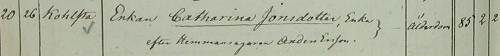 20 26 Kohlsta Enkan Catharina Jonsdotter, Enka } — Ålderdom 85 2 2
efter Hemmansegaren Anders Ersson.